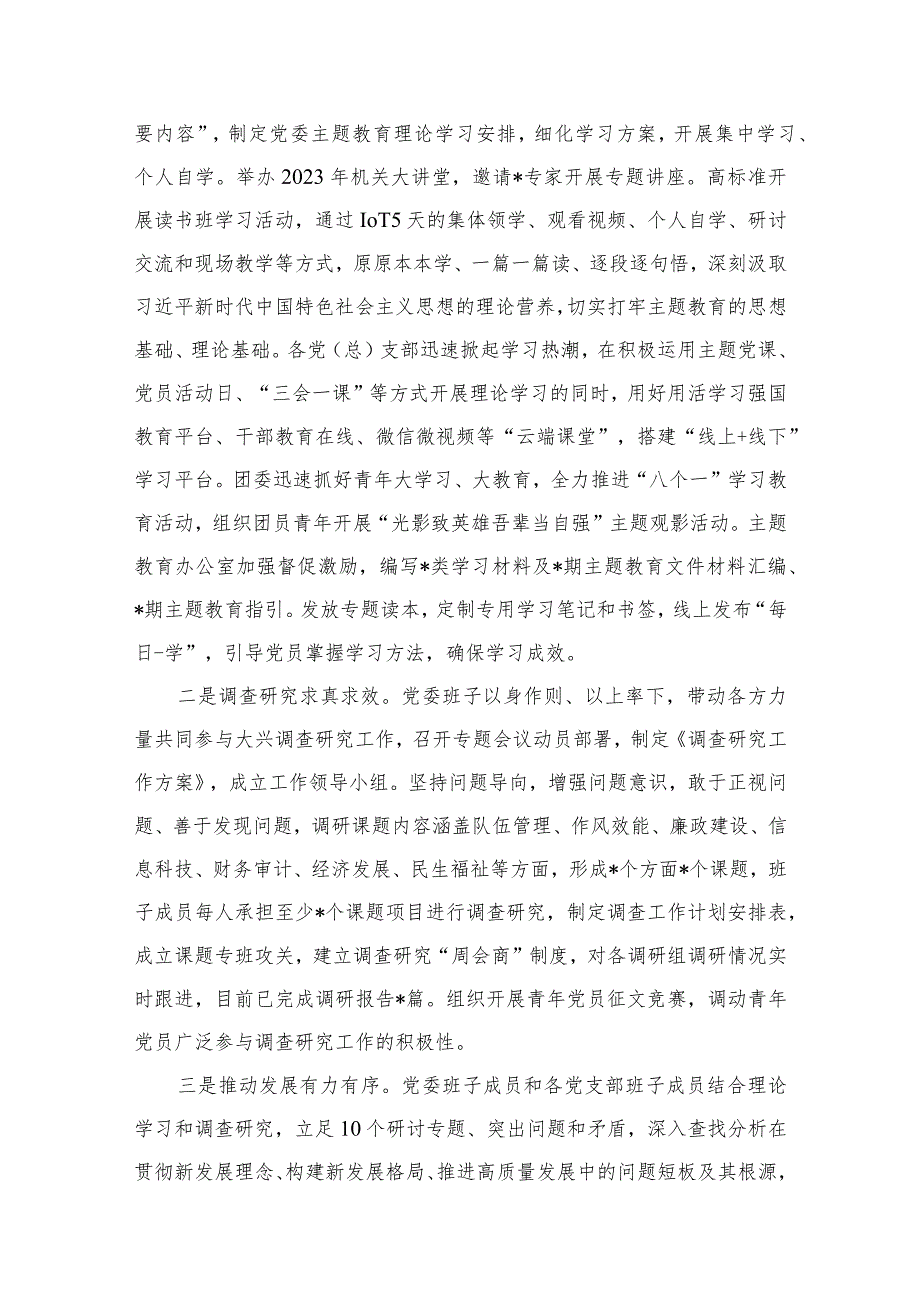 要内容”，制定党委主题教育理论学习安排，细化学习方案，开展集中学习、
个人自学。举办 2023 年机关大讲堂，邀请*专家开展专题讲座。高标准开
展读书班学习活动，通过 IoT5 天的集体领学、观看视频、个人自学、研讨
交流和现场教学等方式，原原本本学、一篇一篇读、逐段逐句悟，深刻汲取
习近平新时代中国特色社会主义思想的理论营养，切实打牢主题教育的思想
基础、理论基础。各党（总）支部迅速掀起学习热潮，在积极运用主题党课、
党员活动日、“三会一课”等方式开展理论学习的同时，用好用活学习强国
教育平台、干部教育在线、微信微视频等“云端课堂”，搭建“线上+线下”
学习平台。团委迅速抓好青年大学习、大教育，全力推进“八个一”学习教
育活动，组织团员青年开展“光影致英雄吾辈当自强”主题观影活动。主题
教育办公室加强督促激励，编写*类学习材料及*期主题教育文件材料汇编、
*期主题教育指引。发放专题读本，定制专用学习笔记和书签，线上发布“每
日-学”，引导党员掌握学习方法，确保学习成效。
二是调查研究求真求效。党委班子以身作则、以上率下，带动各方力
量共同参与大兴调查研究工作，召开专题会议动员部署，制定《调查研究工
作方案》，成立工作领导小组。坚持问题导向，增强问题意识，敢于正视问
题、善于发现问题，调研课题内容涵盖队伍管理、作风效能、廉政建设、信
息科技、财务审计、经济发展、民生福祉等方面，形成*个方面*个课题，班
子成员每人承担至少*个课题项目进行调查研究，制定调查工作计划安排表，
成立课题专班攻关，建立调查研究“周会商”制度，对各调研组调研情况实
时跟进，目前已完成调研报告*篇。组织开展青年党员征文竞赛，调动青年
党员广泛参与调查研究工作的积极性。
三是推动发展有力有序。党委班子成员和各党支部班子成员结合理论
学习和调查研究，立足 10 个研讨专题、突出问题和矛盾，深入查找分析在
贯彻新发展理念、构建新发展格局、推进高质量发展中的问题短板及其根源，